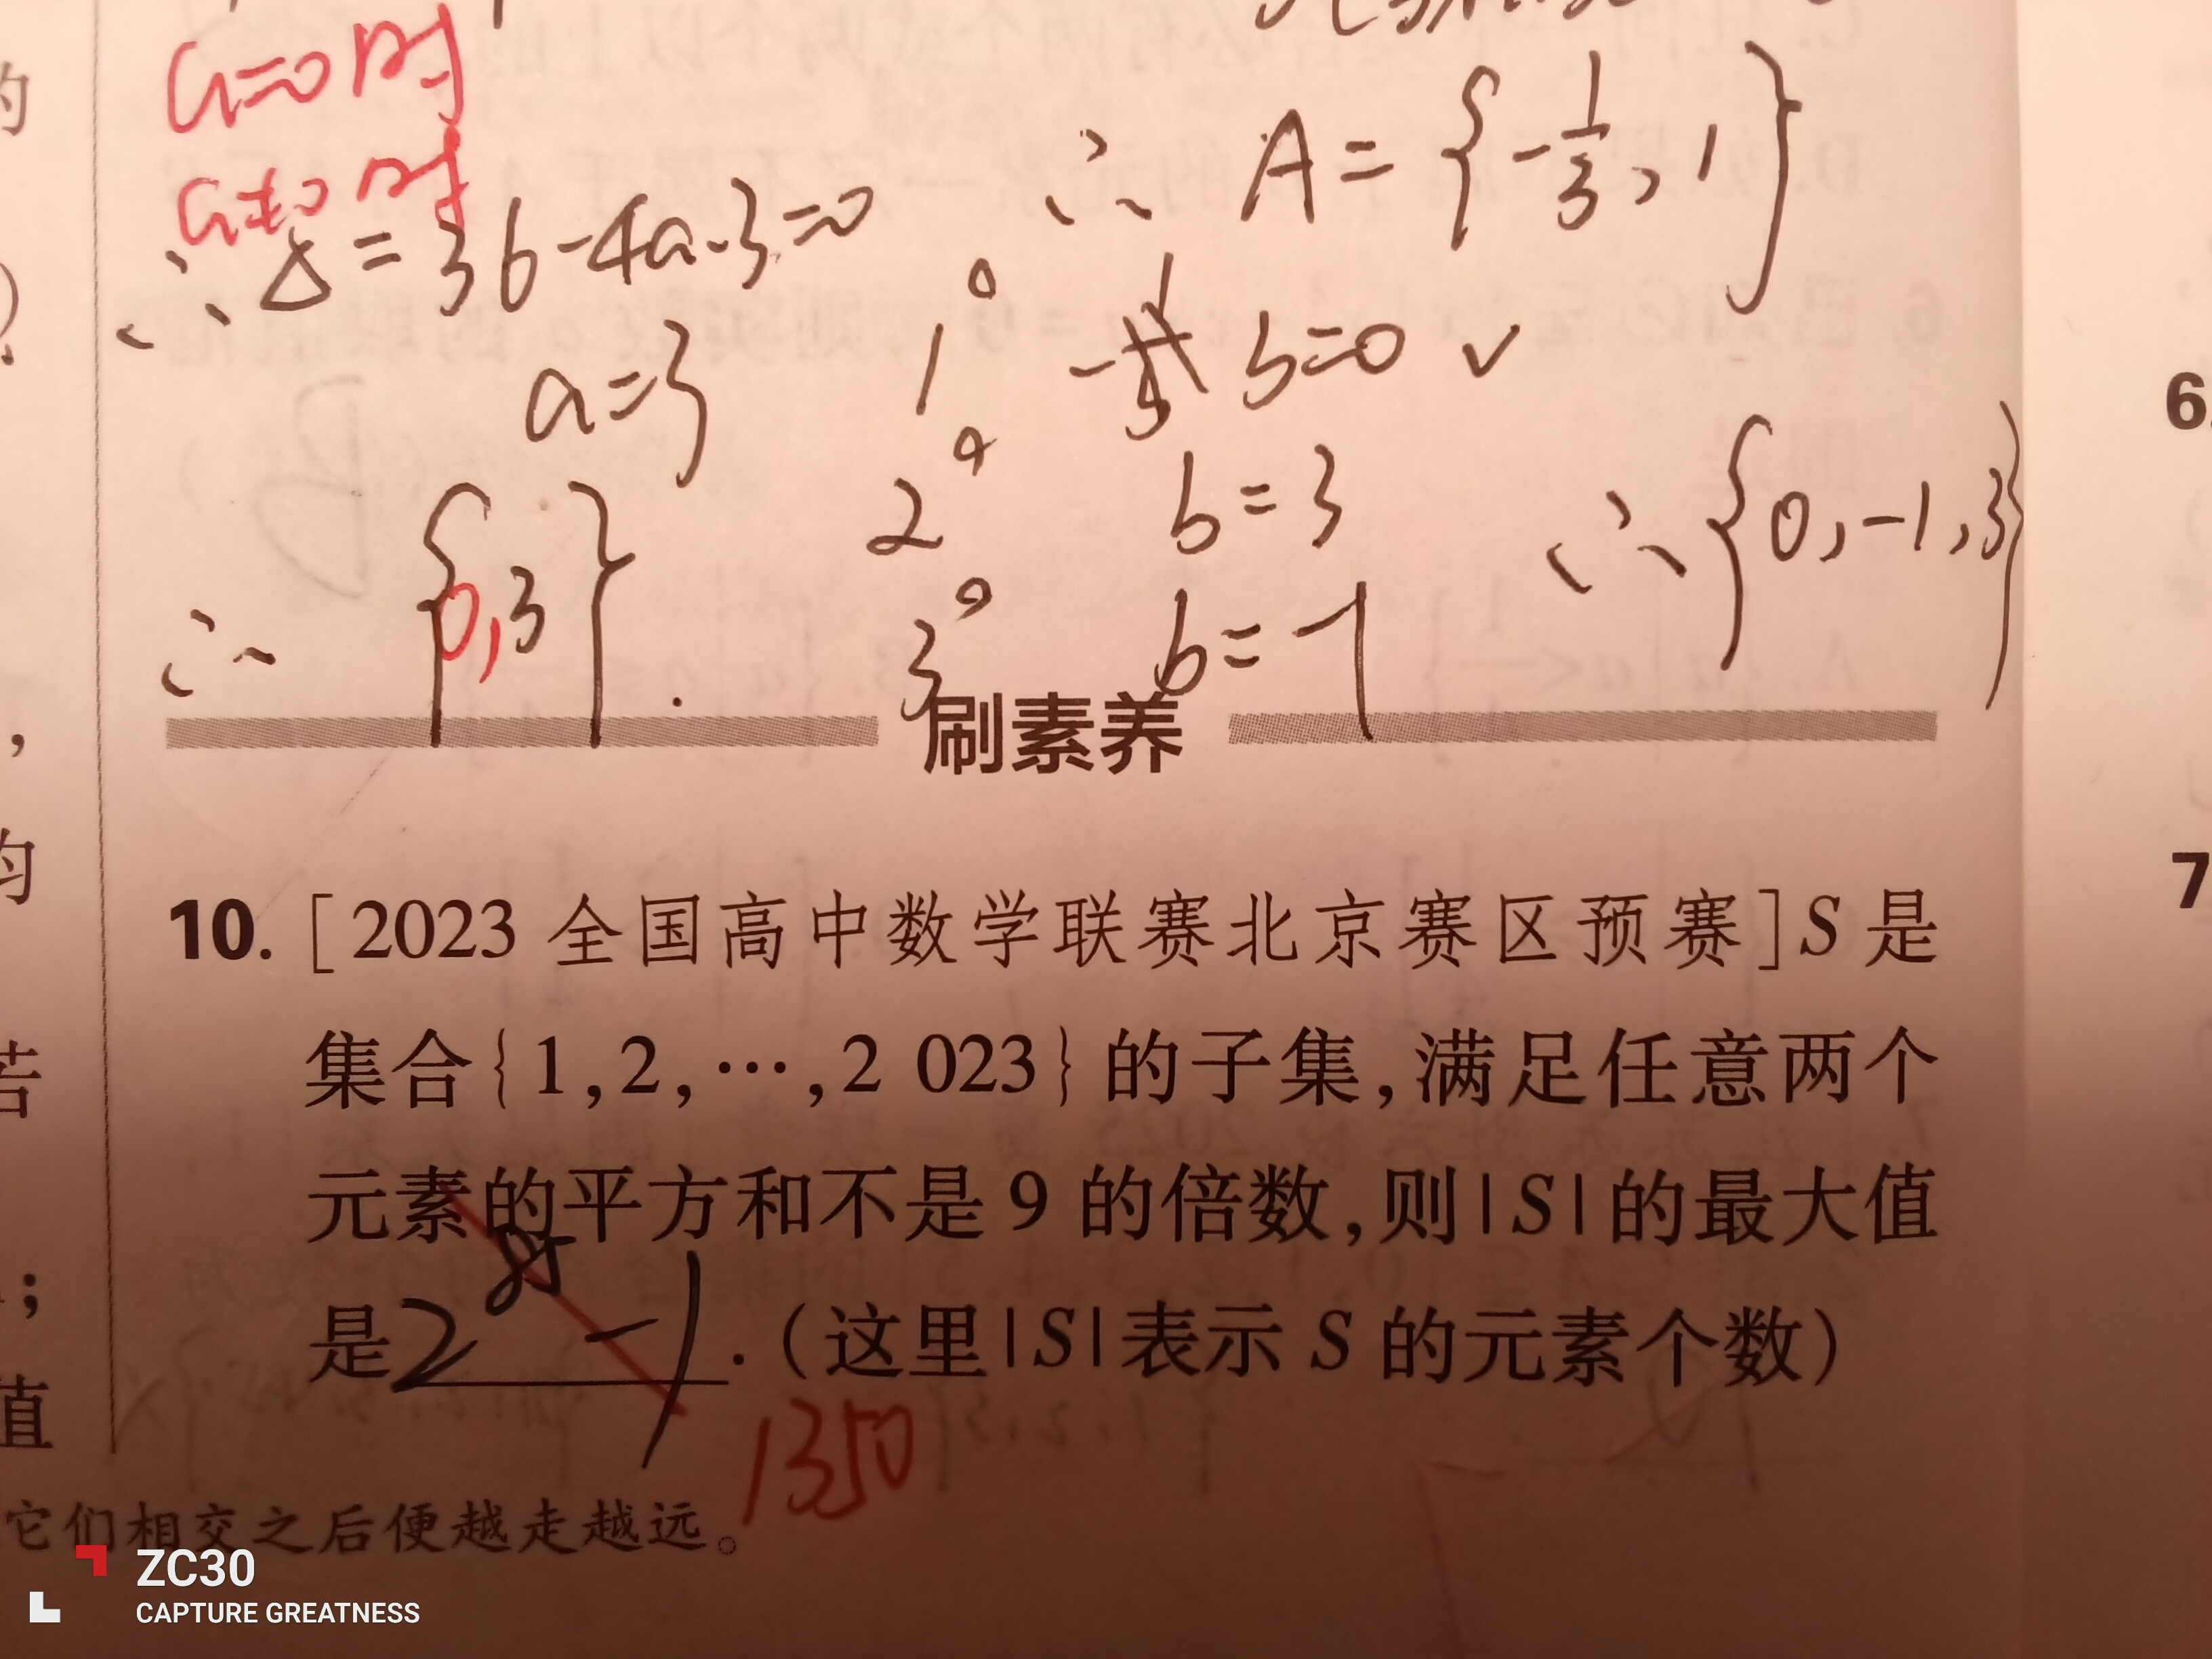 a=0时
a≠0时
∴Δ=36-4a·3=0
a=3
∴{0,3}.
∴A={-1/3,1}
1° b=0 ✓
2° b=3
3° b=-1
∴{0,-1,3}
刷素养
10.[2023全国高中数学联赛北京赛区预赛]S是
集合{1,2,…,2 023}的子集,满足任意两个
元素的平方和不是9的倍数,则|S|的最大值
是 -1 .(这里|S|表示S的元素个数)
1350
它们相交之后便越走越远。
的
)
,
匀
若
;
值
6.
7
ZC30
CAPTURE GREATNESS